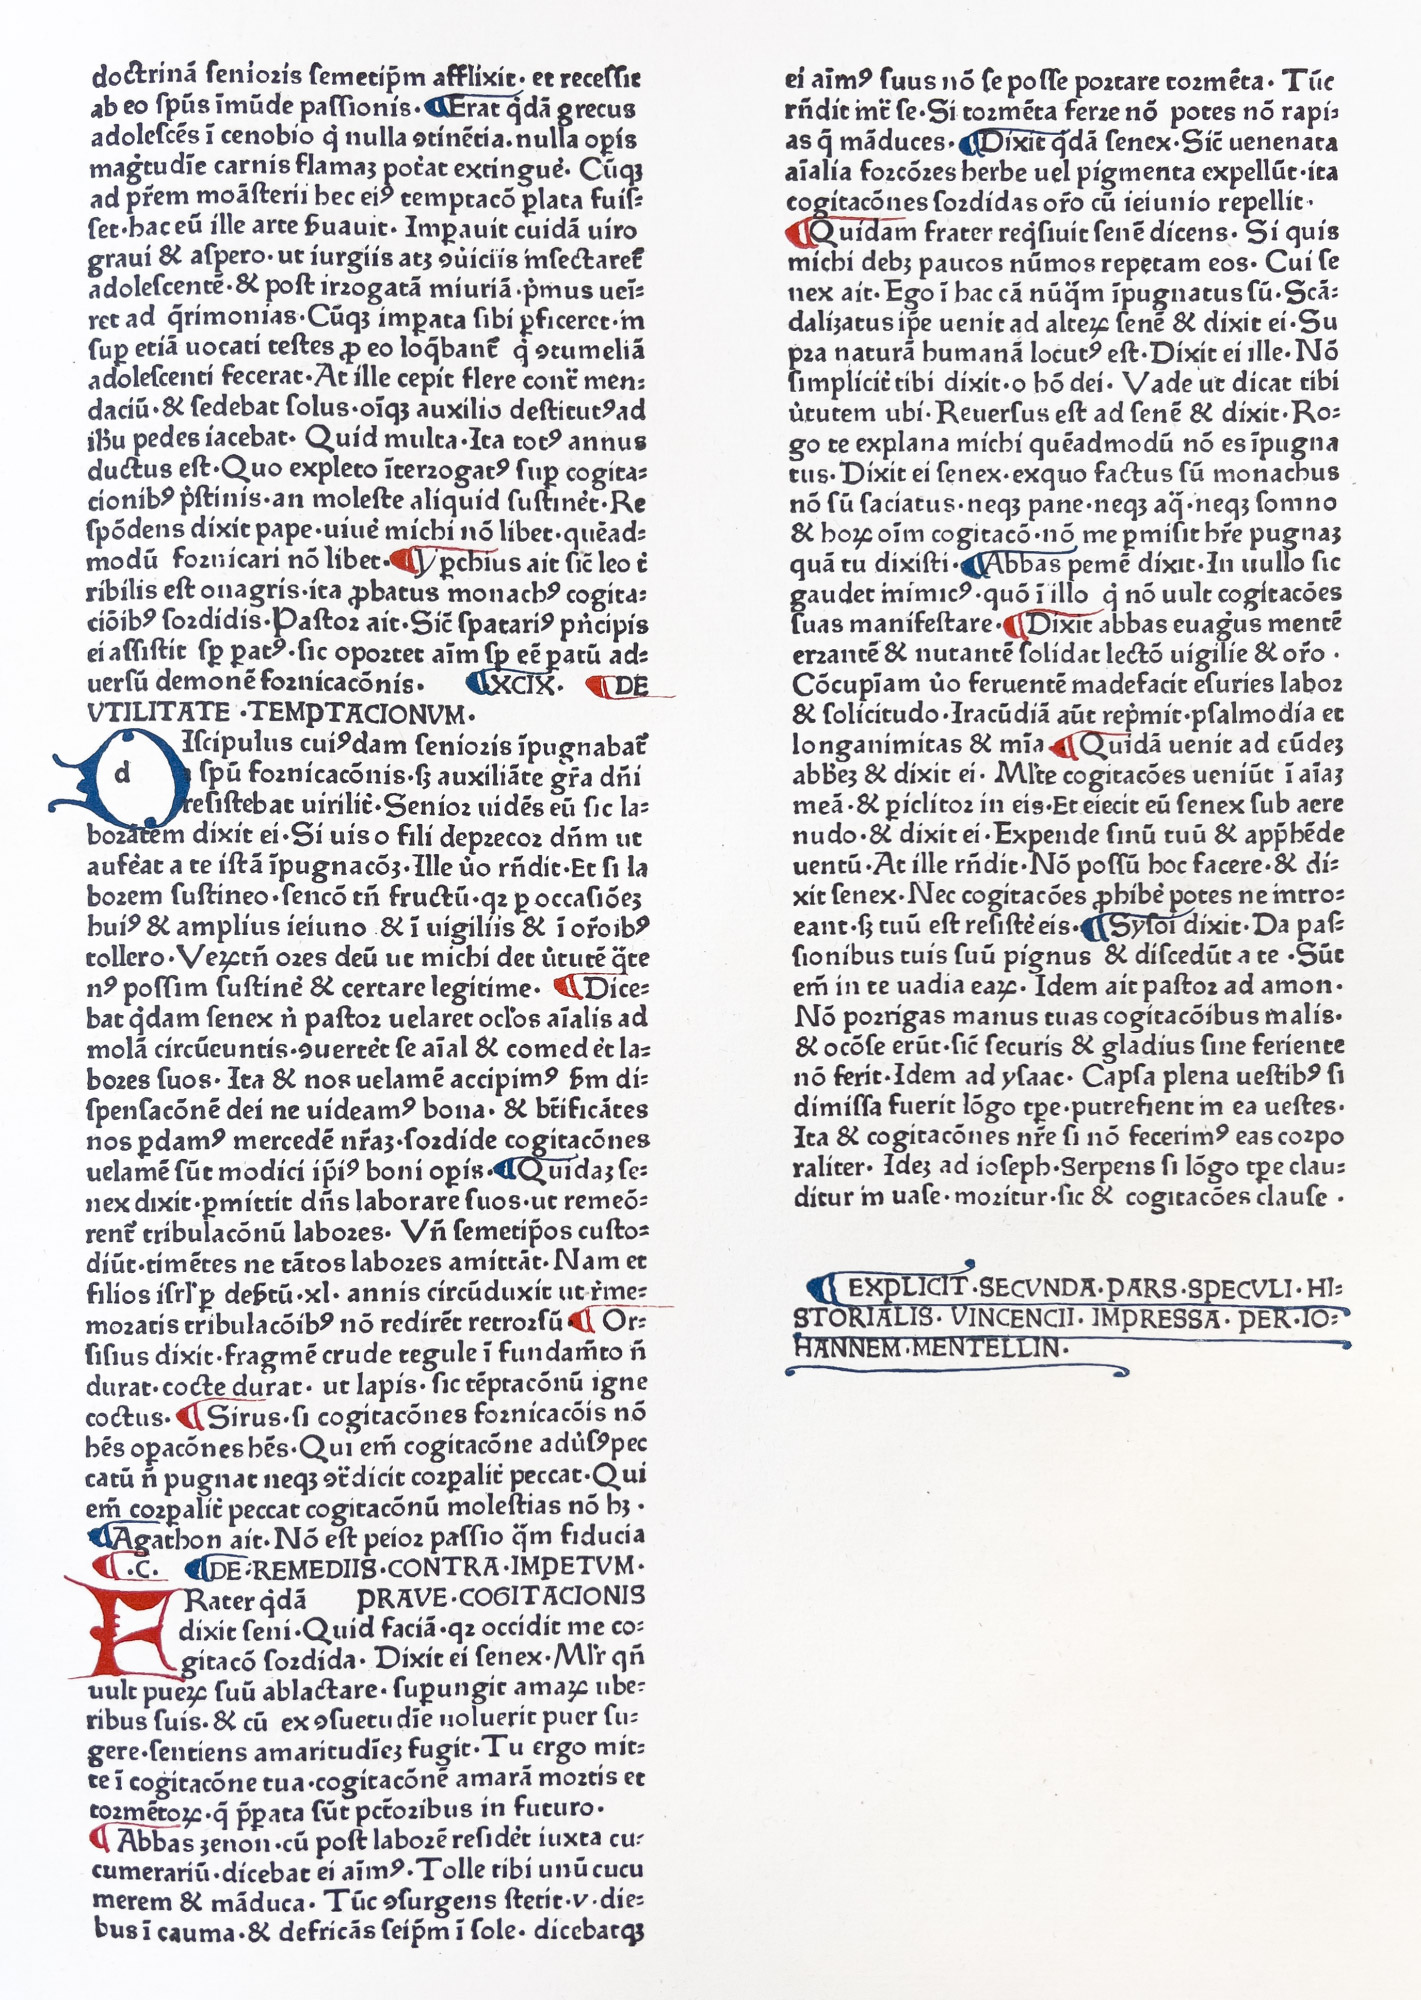 doctrinā senioris semetip̄m afflixit· et recessit
ab eo sp̄us īmūde passionis· ¶Erat q̇dā grecus
adolescēs ī cenobio q̇ nulla ꝯtinētia·nulla opīs
mag̊tudīe carnis flamaꝫ pot̓at extingue̓· Cūqꝫ
ad pr̄em moāsterii hec eiꝰ temptacō ꝓlata fuis⸗
set·hac eū ille arte ẜuauit· Imꝑauit cuidā uiro
graui & aspero·ut iurgiis atqꝫ ꝯuiciis insectaret᷑
adolescentē·& post irrogatā iniuriā·p̓mus ueī⸗
ret ad q̄rimonias·Cūqꝫ imꝑata sibi ꝑficeret·in
suꝑ etiā uocati testes ꝓ eo loq̄bant᷑ q̇ ꝯtumeliā
adolescenti fecerat·At ille cepit flere contᷓ men⸗
daciū·& sedebat solus·oīqꝫ auxilio destitutꝰad
ih̄u pedes iacebat· Quid multa·Ita totꝰ annus
ductus est·Quo expleto īterrogatꝰ suꝑ cogita⸗
cionibꝰ p̓stinis·an moleste aliquid sustinet̓·Re
spōdens dixit pape·uiue̓ michi nō libet·quēad⸗
modū fornicari nō libet·¶Yꝑchius ait sic̄ leo t̓
ribilis est onagris·ita ꝓbatus monachꝰ cogita⸗
ciōibꝰ sordidis·Pastor ait·Sic̄ spatariꝰ pn̓cipis
ei assistit sꝑ patꝰ·sic oportet aīm sꝑ eē patū ad⸗
uersū demonē fornicacōnis· ¶XCIX· ¶DE
VTILITATE ·TEMPTACIONVM·
DIscipulus cuiꝰdam senioris īpugnabat᷑
spū fornicacōnis·sꝫ auxiliāte gr̄a dn̄i
resistebat uirilit̓·Senior uidēs eū sic la⸗
borātem dixit ei·Si uis o fili deprecor dn̄m ut
aufe̓at a te istā īpugnacōꝫ·Ille u̓o rn̄dit·Et si la
borem sustineo·sencō tn̄ fructū·qꝛ ꝑ occasiōeꝫ
huiꝰ & amplius ieiuno & ī uigiliis & ī or̄oibꝰ
tollero·Veꝝtn̄ ores deū ut michi det u̓tutē q̄te
nꝰ possim sustine̓ & certare legitime· ¶Dice⸗
bat q̇dam senex n̓ pastor uelaret ocl̓os aīalis ad
molā circūeuntis·ꝯuertet̓ se aīal & comedet̓ la⸗
bores suos· Ita & nos uelamē accipimꝰ ẜm di⸗
spensacōnē dei ne uideamꝰ bona· & bt̄ificātes
nos ꝑdamꝰ mercedē nr̄aꝫ·sordide cogitacōnes
uelamē sūt modici ip̄iꝰ boni opīs·¶Quidaꝫ se⸗
nex dixit·ꝑmittit dn̄s laborare suos·ut remeō⸗
rent᷑ tribulacōnū labores· Vn̄ semetip̄os custo⸗
diūt·timētes ne tātos labores amittāt·Nam et
filios isrl̓ ꝑ deẜtū·xl· annis circūduxit ut r̓me⸗
moratis tribulacōibꝰ nō redirēt retrorsū¶ Or⸗
sisius dixit·fragmē crude tegule ī fundam̄to n̄
durat·cocte durat· ut lapis·sic tēptacōnū igne
coctus· ¶Sirus·si cogitacōnes fornicacōis nō
hēs oꝑacōnes hēs·Qui em̄ cogitacōne adu̓sꝰpec
catū n̄ pugnat neqꝫ ꝯtᷓdicit corꝑalit̓ peccat·Qui
em̄ corꝑalit̓ peccat cogitacōnū molestias nō hꝫ ·
¶Agathon ait·Nō est peior passio q̄m fiducia
¶·C· ¶DE·REMEDIIS·CONTRA·IMPETVM·
FRater q̇dā PRAVE·COGITACIONIS
dixit seni·Quid faciā·qꝛ occidit me co⸗
gitacō sordida· Dixit ei senex·Ml̓r qn̄
uult pueꝝ suū ablactare·suꝑungit amaꝝ ube⸗
ribus suis·& cū ex ꝯsuetudīe uoluerit puer su⸗
gere·sentiens amaritudīeꝫ fugit·Tu ergo mit⸗
te ī cogitacōne tua·cogitacōnē amarā mortis et
tormētoꝝ·q̄ p̄ꝑata sūt pctōribus in futuro·
¶Abbas ꝫenon·cū post laborē residet̓ iuxta cu⸗
cumerariū·dicebat ei aīmꝰ·Tolle tibi unū cucu
merem & māduca· Tūc ꝯsurgens stetit·v·die⸗
bus ī cauma·& defricās seip̄m ī sole· dicebatqꝫ
ei aīmꝰ suus nō se posse portare tormēta· Tūc
rn̄dit int᷑ se·Si tormēta ferre nō potes nō rapi⸗
as q̄ māduces·¶Dixit q̇dā senex·Sic̄ uenenata
aīalia forcōres herbe uel pigmenta expellūt·ita
cogitacōnes sordidas or̄o cū ieiunio repellit·
¶Quidam frater req̇siuit senē dicens· Si quis
michi debꝫ paucos nūmos repetam eos· Cui se
nex ait·Ego ī hac cā nūq̄m īpugnatus sū·Scā⸗
daliꝫatus ip̄e uenit ad alteꝝ senē & dixit ei·Su
pra naturā humanā locutꝰ est·Dixit ei ille·Nō
simplicit̓ tibi dixit·o hō dei· Vade ut dicat tibi
u̓tutem ubi·Reuersus est ad senē & dixit·Ro⸗
go te explana michi quēadmodū nō es īpugna
tus·Dixit ei senex·exquo factus sū monachus
nō sū saciatus·neqꝫ pane·neqꝫ aq̄·neqꝫ somno
& hoꝝ oīm cogitacō·nō me ꝑmisit hr̄e pugnaꝫ
quā tu dixisti·¶Abbas pemē dixit·In nullo sic
gaudet inimicꝰ·quō ī illo q̇ nō uult cogitacōes
suas manifestare·¶Dixit abbas euag̓us mentē
errantē & nutantē solidat lectō uigilie & or̄o ·
Cōcupīam u̓o feruentē madefacit esuries labor
& solicitudo·Iracūdiā aūt rep̓mit·psalmodia et
longanimitas & mīa¶Quidā uenit ad eūdeꝫ
abb̄eꝫ & dixit ei· Ml̓te cogitacōes ueniūt ī aīaꝫ
meā·& ꝑiclitor in eis·Et eiecit eū senex sub aere
nudo·& dixit ei·Expende sinū tuū & app̓hēde
uentū·At ille rn̄dit·Nō possū hoc facere·& di⸗
xit senex·Nec cogitacōes ꝓhibe̓ potes ne intro⸗
eant·sꝫ tuū est resiste̓ eis·¶Sysoi dixit·Da pas⸗
sionibus tuis suū pignus & discedūt a te ·Sūt
em̄ in te uadia eaꝝ· Idem ait pastor ad amon·
Nō porrigas manus tuas cogitacōibus malis·
& ocōse erūt·sic̄ securis & gladius sine feriente
nō ferit·Idem ad ysaac· Capsa plena uestibꝰ si
dimissa fuerit lōgo tꝑe·putrefient in ea uestes·
Ita & cogitacōnes nr̄e si nō fecerimꝰ eas corpo
raliter· Ideꝫ ad ioseph·Serpens si lōgo tꝑe clau⸗
ditur in uase·moritur·sic & cogitacōes clause ·
¶ EXPLICIT·SECVNDA·PARS·SPECVLI·HI⸗
STORIALIS· VINCENCII· IMPRESSA· PER·IO⸗
HANNEM·MENTELLIN·